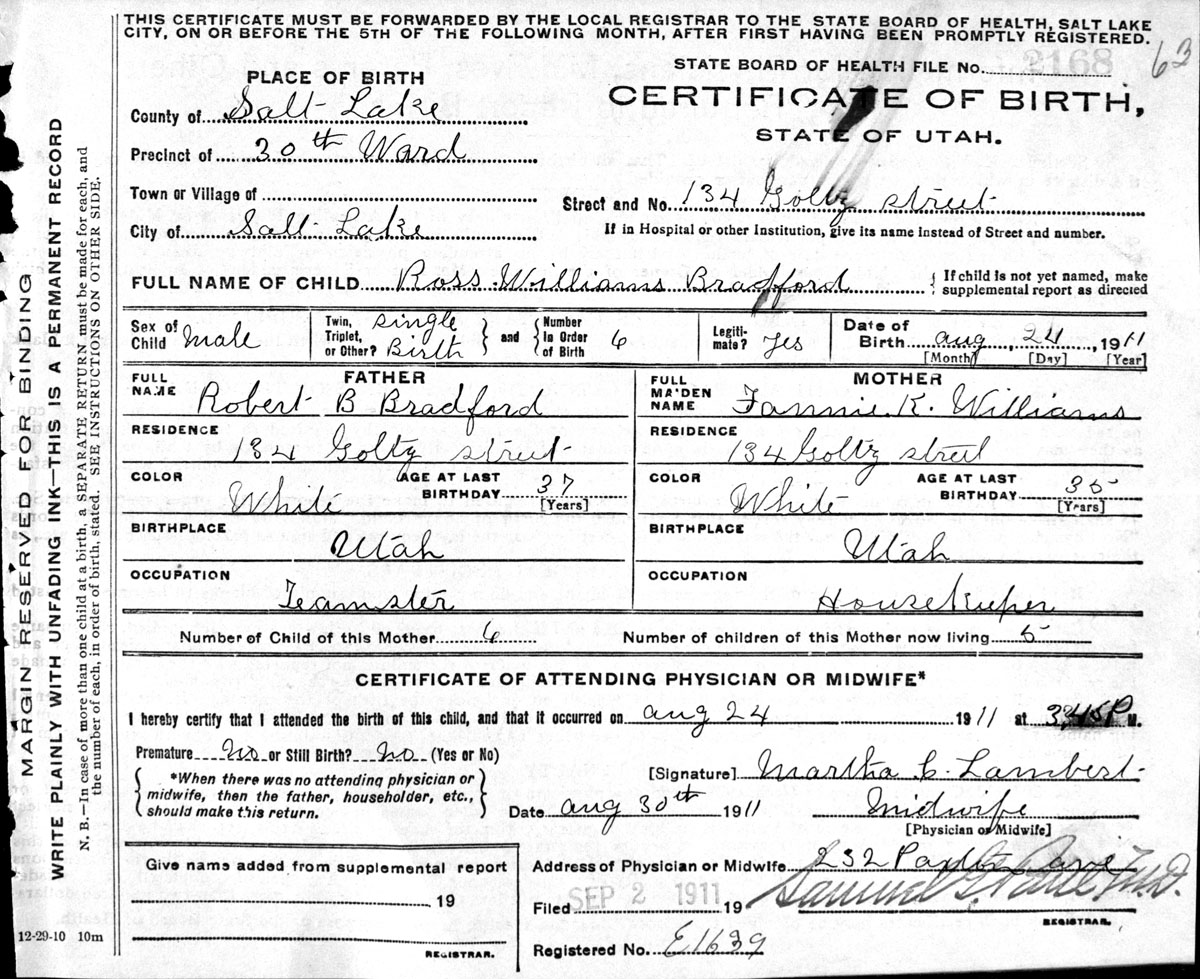 THIS CERTIFICATE MUST BE FORWARDED BY THE LOCAL REGISTRAR TO THE STATE BOARD OF HEALTH, SALT LAKE
CITY, ON OR BEFORE THE 5TH OF THE FOLLOWING MONTH, AFTER FIRST HAVING BEEN PROMPTLY REGISTERED.
63
STATE BOARD OF HEALTH FILE No. 2168
CERTIFICATE OF BIRTH,
STATE OF UTAH.
PLACE OF BIRTH
County of Salt Lake
Precinct of 30th Ward
Town or Village of
City of Salt Lake
Street and No. 134 Goltz street
If in Hospital or other Institution, give its name instead of Street and number.
FULL NAME OF CHILD Ross Williams Bradford
If child is not yet named, make
supplemental report as directed
Sex of Child male
Twin, Triplet, or Other? single Birth
and Number in Order of Birth 6
Legitimate? Yes
Date of Birth aug 24, 1911
[Month] [Day] [Year]
FATHER
FULL NAME Robert B Bradford
RESIDENCE
134 Goltz street
COLOR White AGE AT LAST BIRTHDAY 37
[Years]
BIRTHPLACE
Utah
OCCUPATION
Teamster
MOTHER
FULL MAIDEN NAME Fannie K. Williams
RESIDENCE
134 Goltz street
COLOR White AGE AT LAST BIRTHDAY 35
[Years]
BIRTHPLACE
Utah
OCCUPATION
Housekeeper
Number of Child of this Mother 6 Number of children of this Mother now living 5
CERTIFICATE OF ATTENDING PHYSICIAN OR MIDWIFE*
I hereby certify that I attended the birth of this child, and that it occurred on aug 24 1911 at 3,45 P M.
Premature No or Still Birth? No (Yes or No)
*When there was no attending physician or
midwife, then the father, householder, etc.,
should make this return.
[Signature] Martha C. Lambert
Date aug 30th 1911 Midwife
[Physician or Midwife]
Give name added from supplemental report
19
REGISTRAR.
Address of Physician or Midwife 232
Filed SEP 2 1911 19 Samuel G. Paul M.D.
REGISTRAR.
Registered No. E1639
12-29-10 10m
MARGIN RESERVED FOR BINDING
WRITE PLAINLY WITH UNFADING INK—THIS IS A PERMANENT RECORD
N. B.—In case of more than one child at a birth, a SEPARATE RETURN must be made for each, and
the number of each, in order of birth, stated. SEE INSTRUCTIONS ON OTHER SIDE.